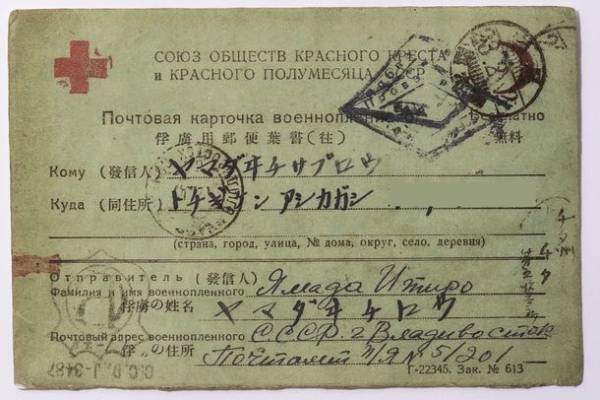 СОЮЗ ОБЩЕСТВ КРАСНОГО КРЕСТА
и КРАСНОГО ПОЛУМЕСЯЦА СССР
Почтовая карточка военнопленного
Бесплатно
俘虜用郵便葉書(往)
無料
Кому (發信人) ヤマダヰチサブロウ
Куда (同住所) トチギケン アシカガシ
(страна, город, улица, № дома, округ, село, деревня)
Отправитель (發信人)
Фамилия и имя военнопленного Ямада Итиро
俘虜の姓名 ヤマダヰチロウ
Почтовый адрес военнопленного СССР г Владивосток
俘 の住所 Почтамт п/я N 5/201-
Г-22345. Зак. № 613
C.C.D.J-3487